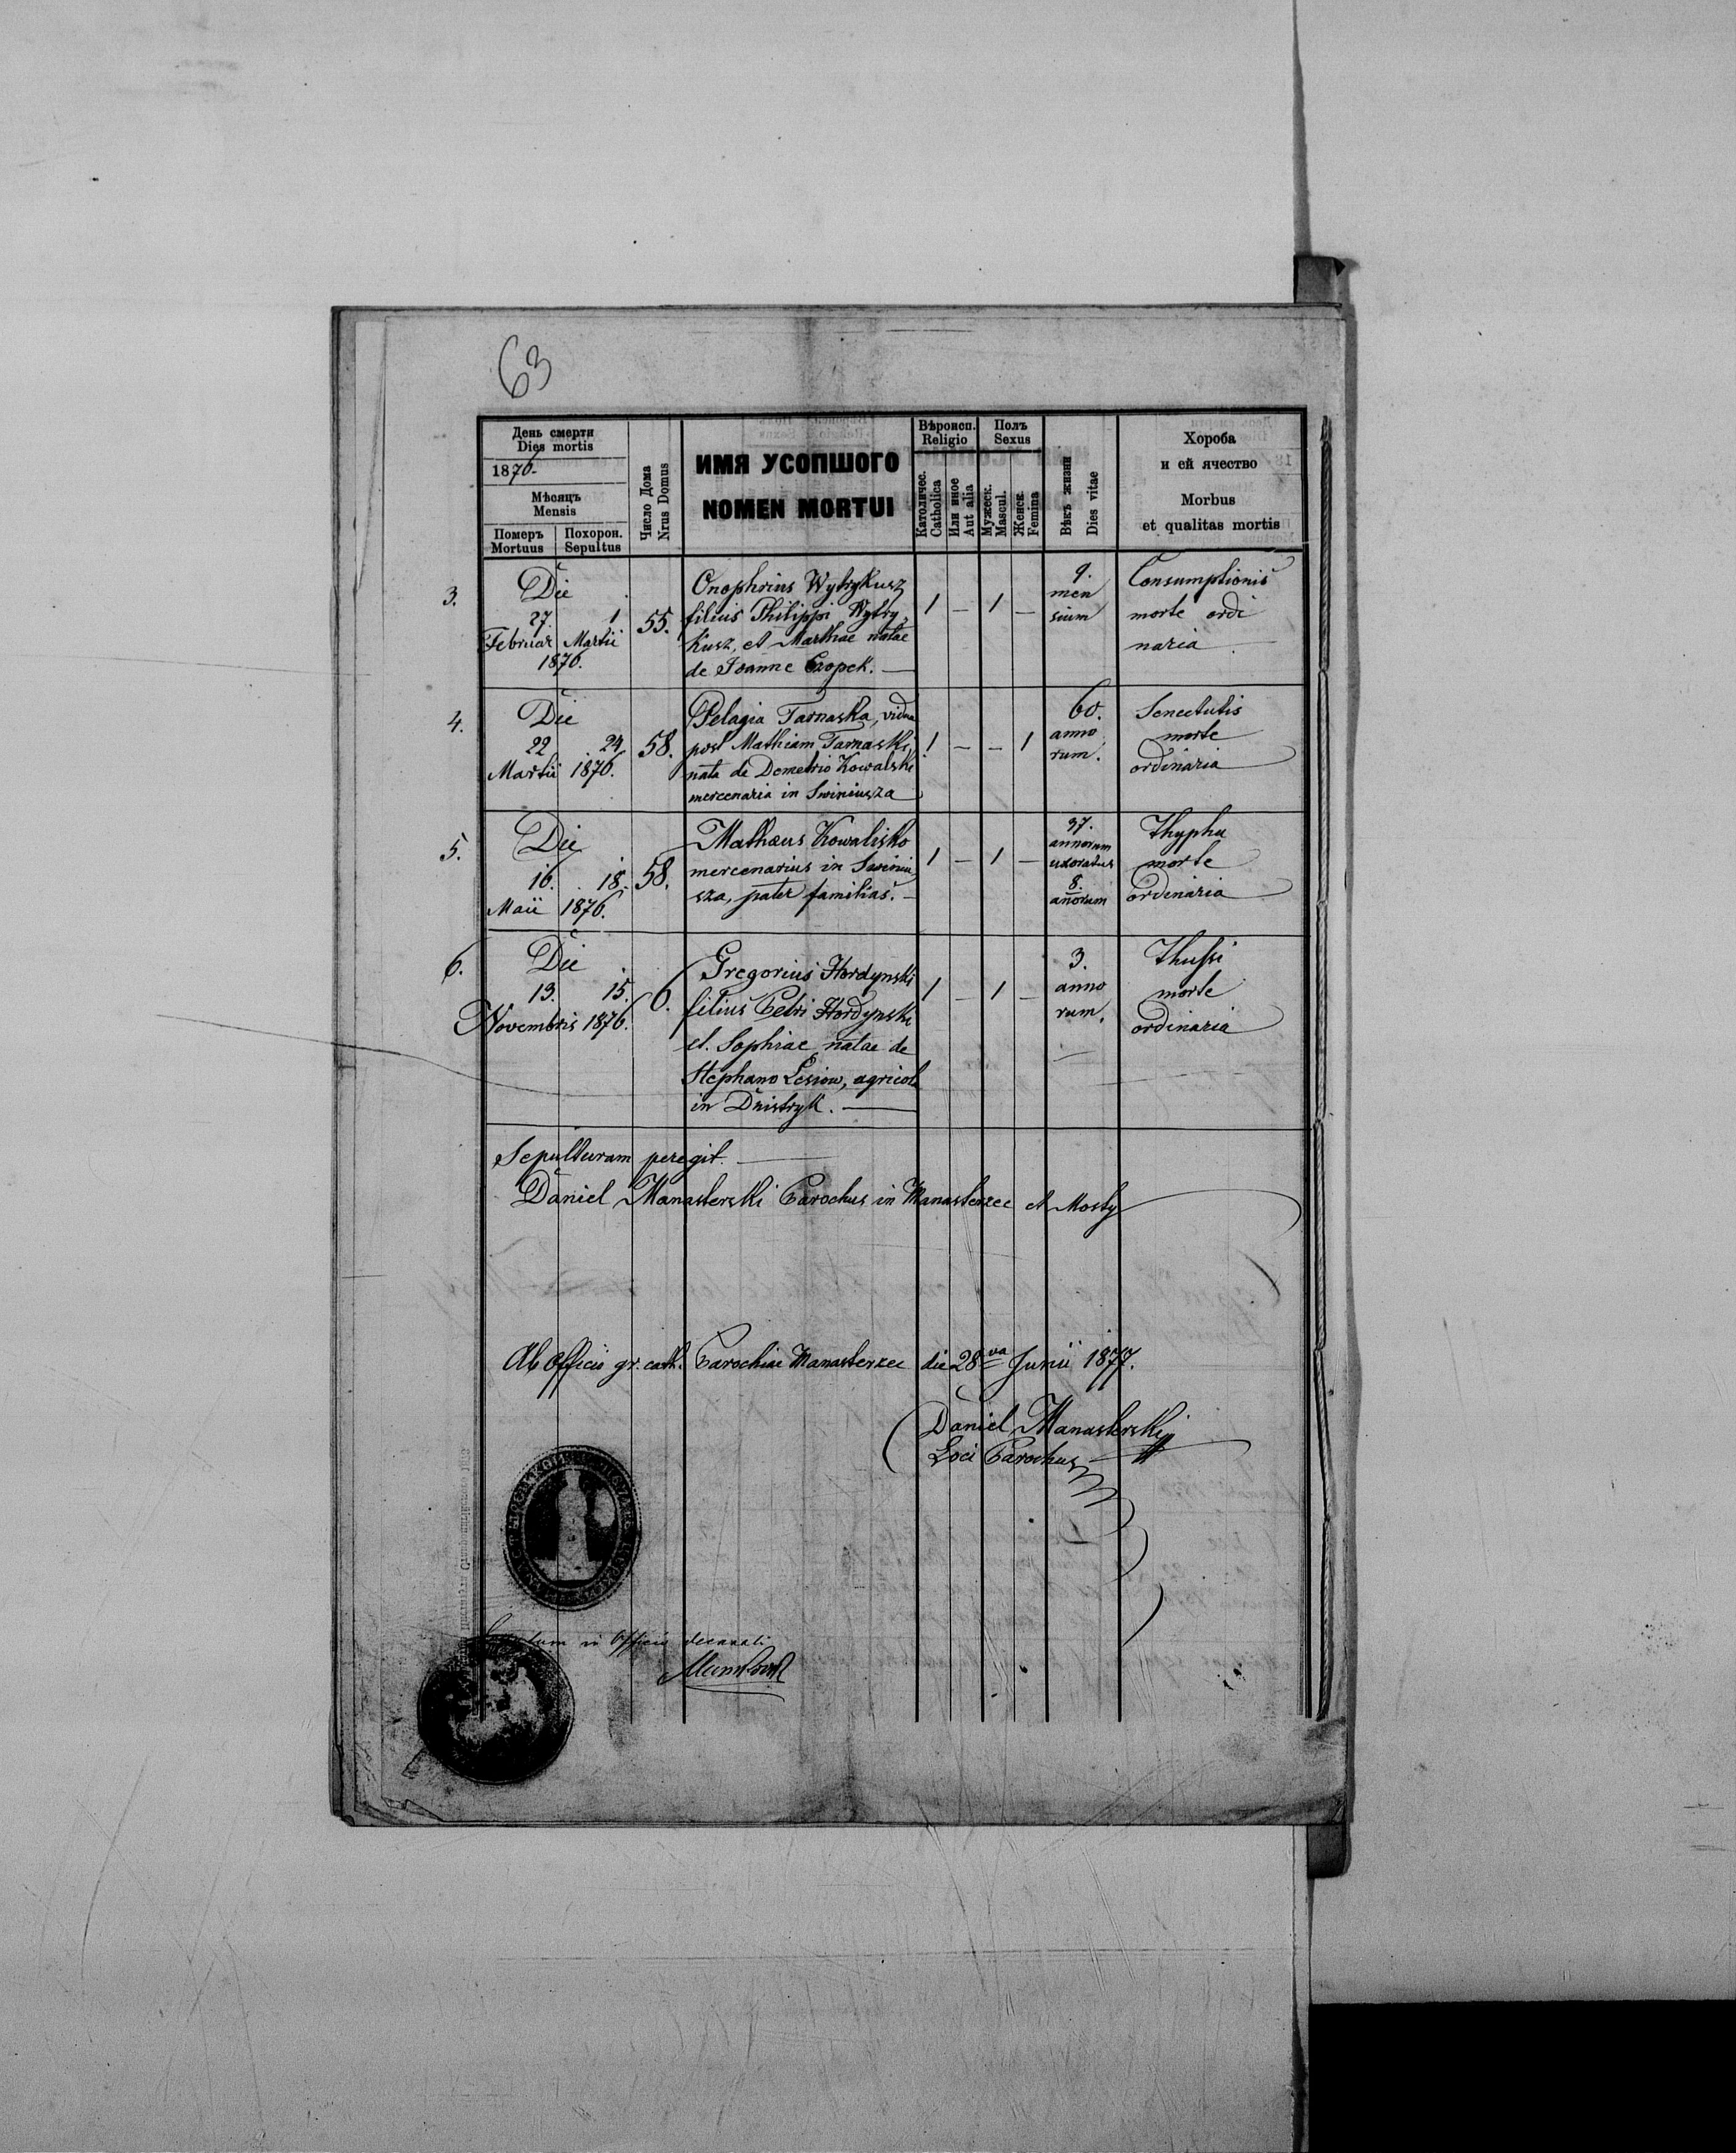 63
День смерти
Dies mortis
1876.
Мѣсяцъ
Mensis
Померъ
Mortuus
Похорон.
Sepultus
Число Дома
Nrus Domus
ИМЯ УСОПШОГО
NOMEN MORTUI
Вѣроисп.
Religio
Католичес.
Catholica
Или иное
Aut alia
Полъ
Sexus
Мужеск.
Mascul.
Женск.
Femina
Вѣкъ жизни
Dies vitae
Хороба
и ей ячество
Morbus
et qualitas mortis
3.
Die
27. 1
Februar Martii
1876.
55.
Onophrius Wytrykusz
filius Philippi Wytry-
kusz, et Marthae natae
de Joanne Czopek.
1 – 1 –
9.
men
sium
Consumptionis
morte ordi
naria
4.
Die
22 24
Martii 1876.
58.
Pelagia Tarnaska, vidua
post Mathiam Tarnaski,
nata de Demetrio Kowalski
mercenaria in Swiniusza
1 – – 1
60.
anno
rum.
Senectutis
morte
ordinaria
5.
Die
16. 18.
Maii 1876.
58.
Mathaeus Kowalisko
mercenarius in Swiniu
sza, pater familias.
1 – 1 –
37.
annorum
uxoratus
8.
anorum
Thypha
morte
ordinaria
6.
Die
13. 15.
Novembris 1876.
6.
Gregorius Hordynski
filius Petri Hordynski
et Sophiae natae de
Stephano Lesiow, agricol
in Dnistryk.
1 – 1 –
3.
anno
rum.
Thussi
morte
ordinaria
Sepulturam peregit.
Daniel Manasterski Parochus in Manasterzec et Mosty
Ab Officio gr. cath. Parochiae Manasterzec die 28va Junii 1877.
Daniel Manasterski
Loci Parochus
in Officio decanali